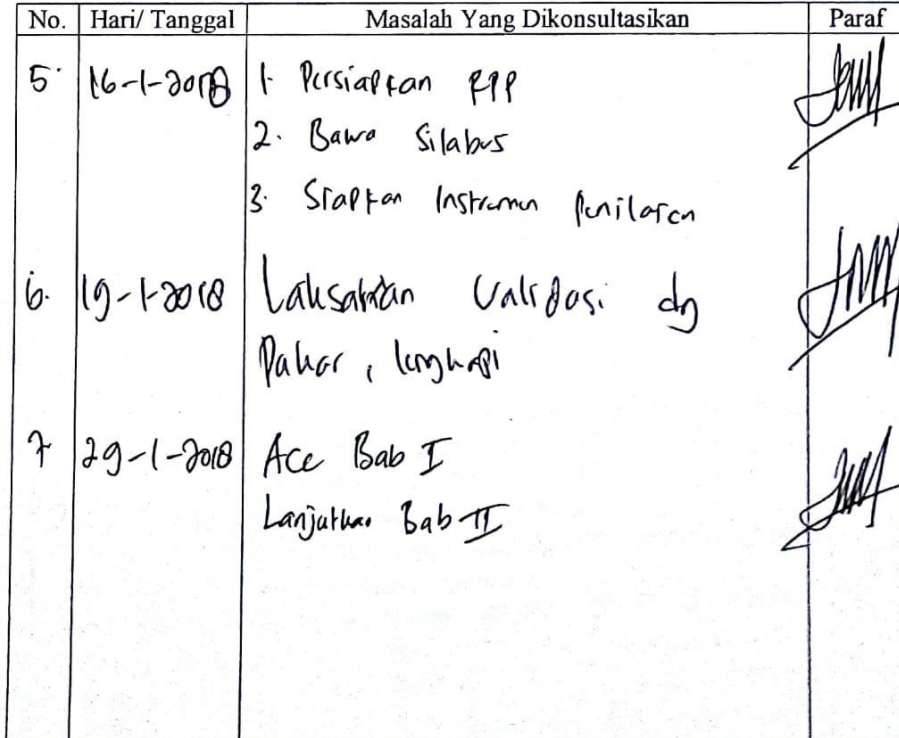 No. Hari/ Tanggal Masalah Yang Dikonsultasikan Paraf
5. 16-1-2018 1. Persiapkan RPP
2. Bawa Silabus
3. Siapkan Instrumen Penilaian
6. 19-1-2018 Laksanakan Validasi dg
Pakar, lengkapi
7 29-1-2018 Acc Bab I
Lanjutkan Bab II